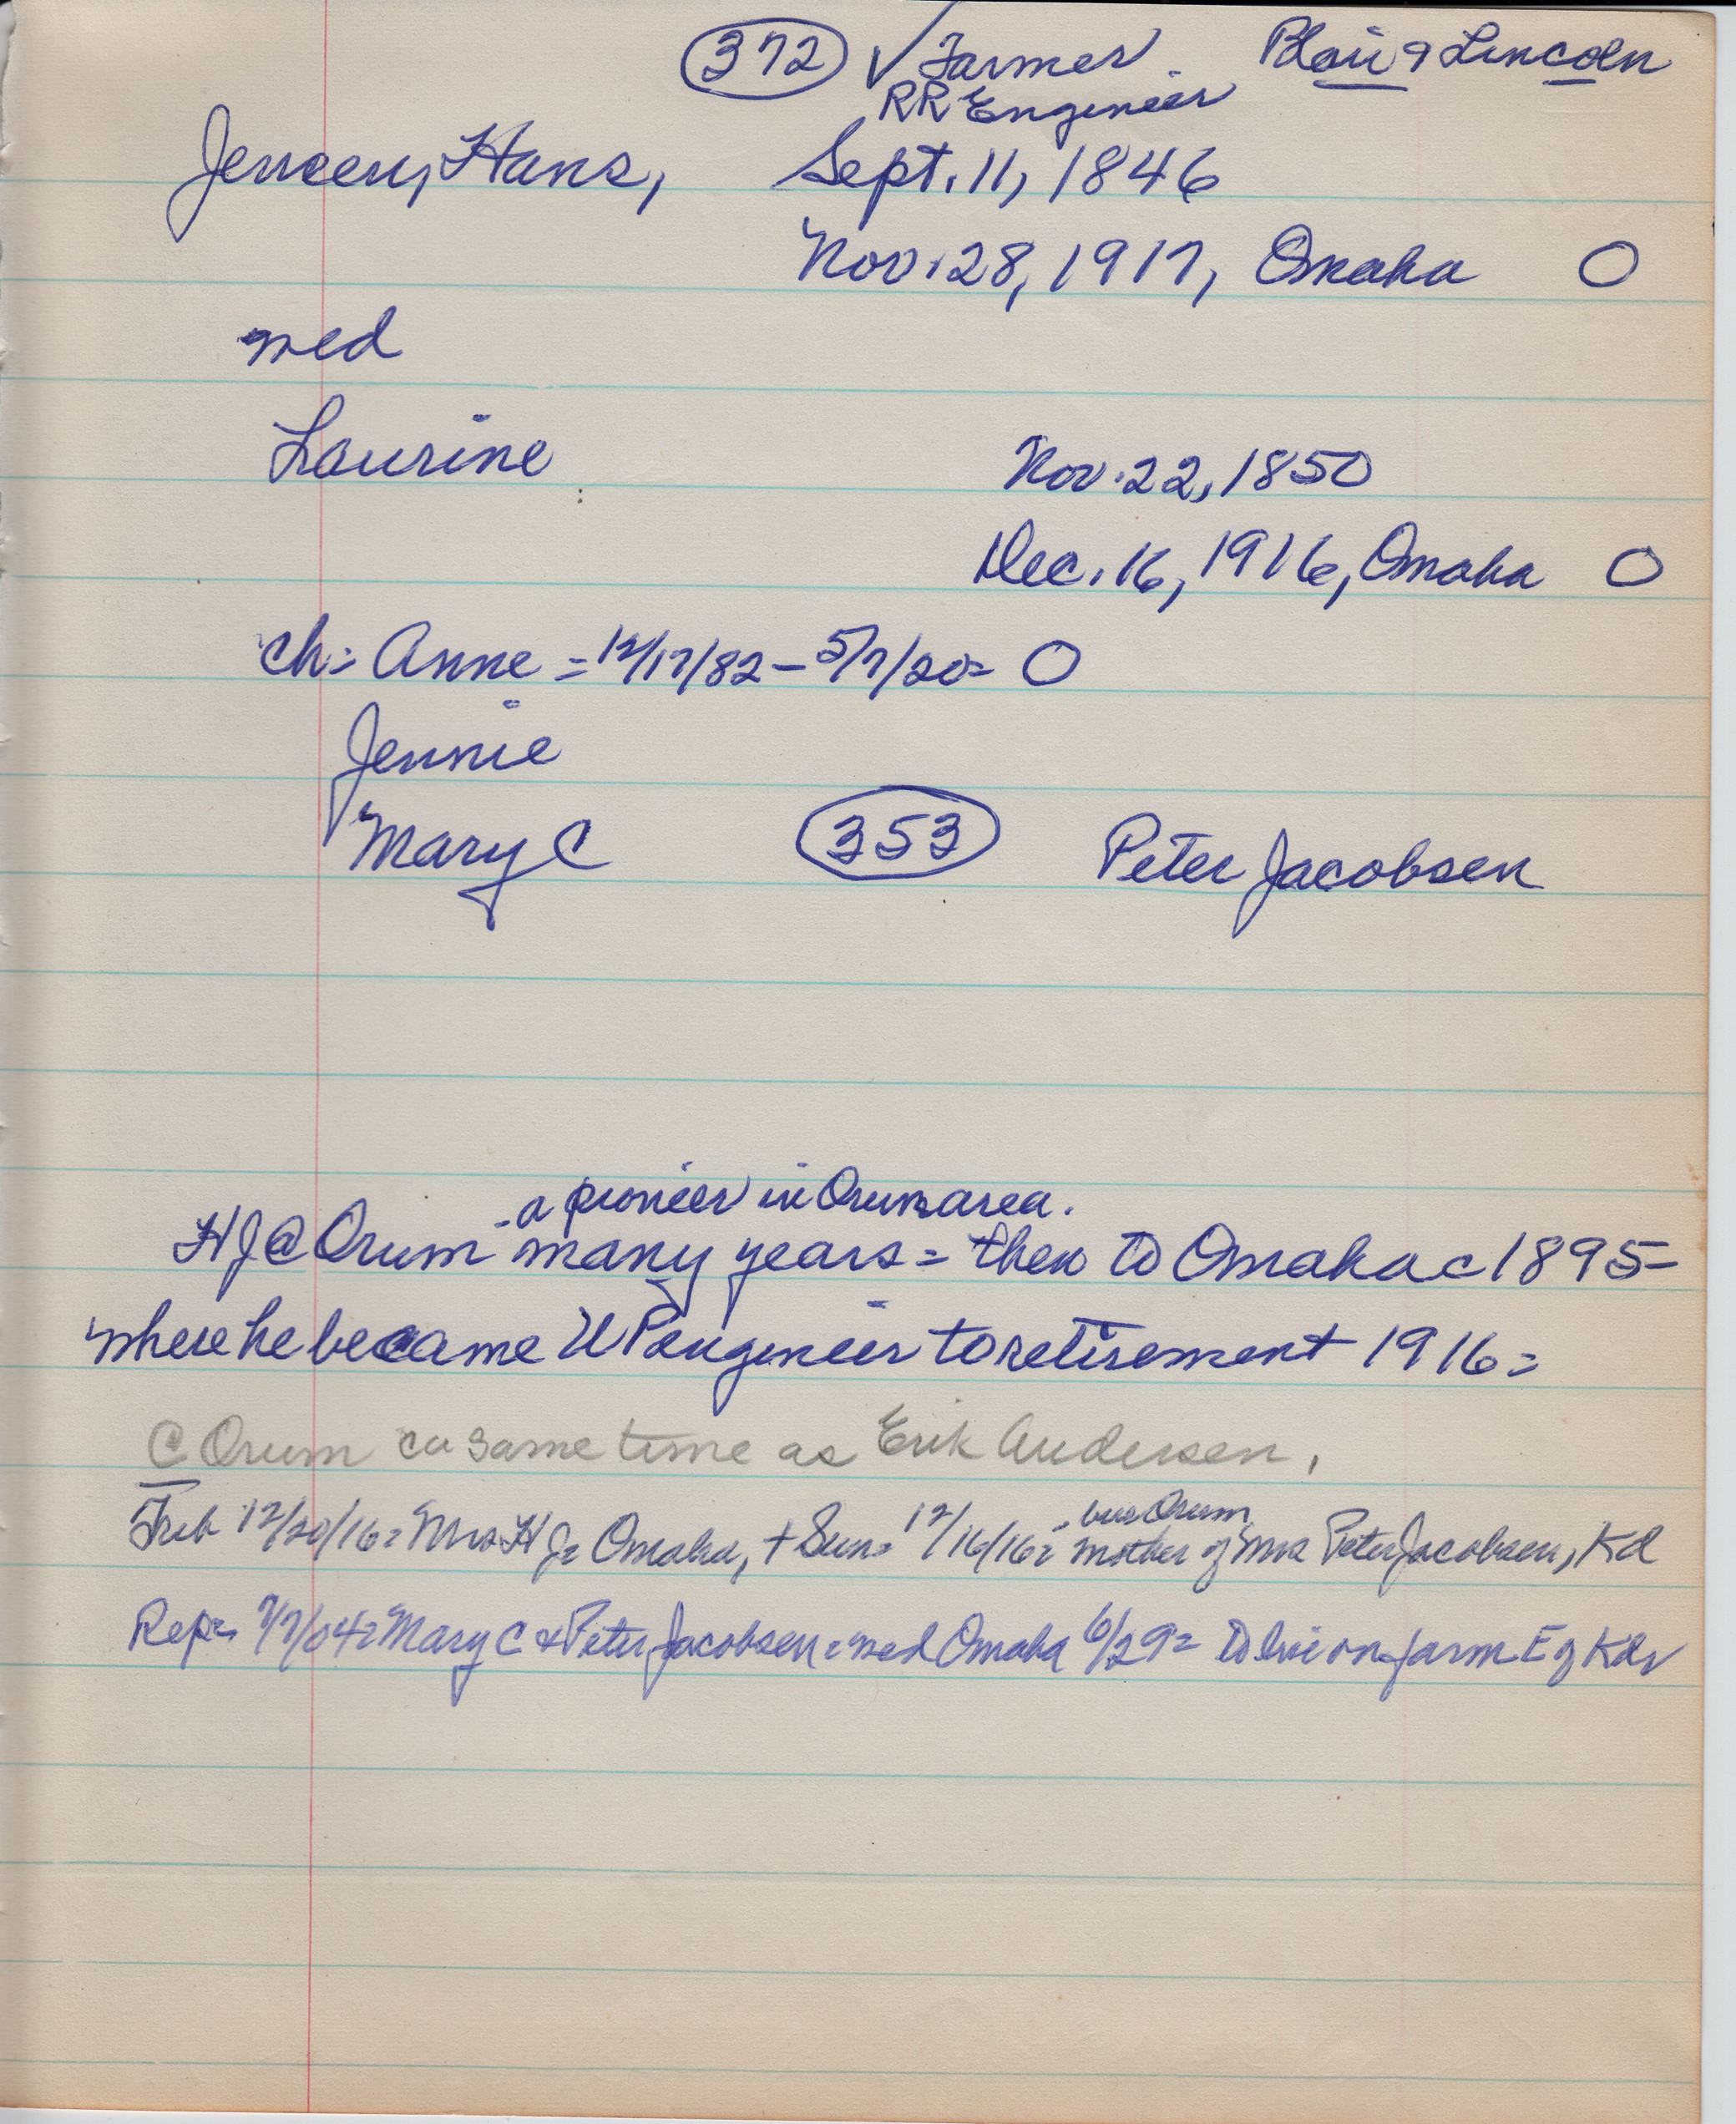 372 ✓ Farmer. Blair & Lincoln
RR Engineer
Jensen, Hans, Sept. 11, 1846
Nov. 28, 1917, Omaha O
med
Laurine Nov. 22, 1850
Dec. 16, 1916, Omaha O
ch: Anne = 12/17/82 – 5/7/20 = O
Jennie
Mary C 353 Peter Jacobsen
- a pioneer in Orum area.
HJ @ Orum many years = then to Omaha c 1895 –
where he became UP engineer to retirement 1916 =
C Orum ca same time as Erik Andersen.
- bur Orum
Trib 12/20/16 = Mrs HJ = Omaha, + Sun = 12/16/16 = mother of Mrs Peter Jacobsen, Kd
Rep = 7/7/04 = Mary C & Peter Jacobsen = med Omaha 6/29 = to live on farm E of Kd